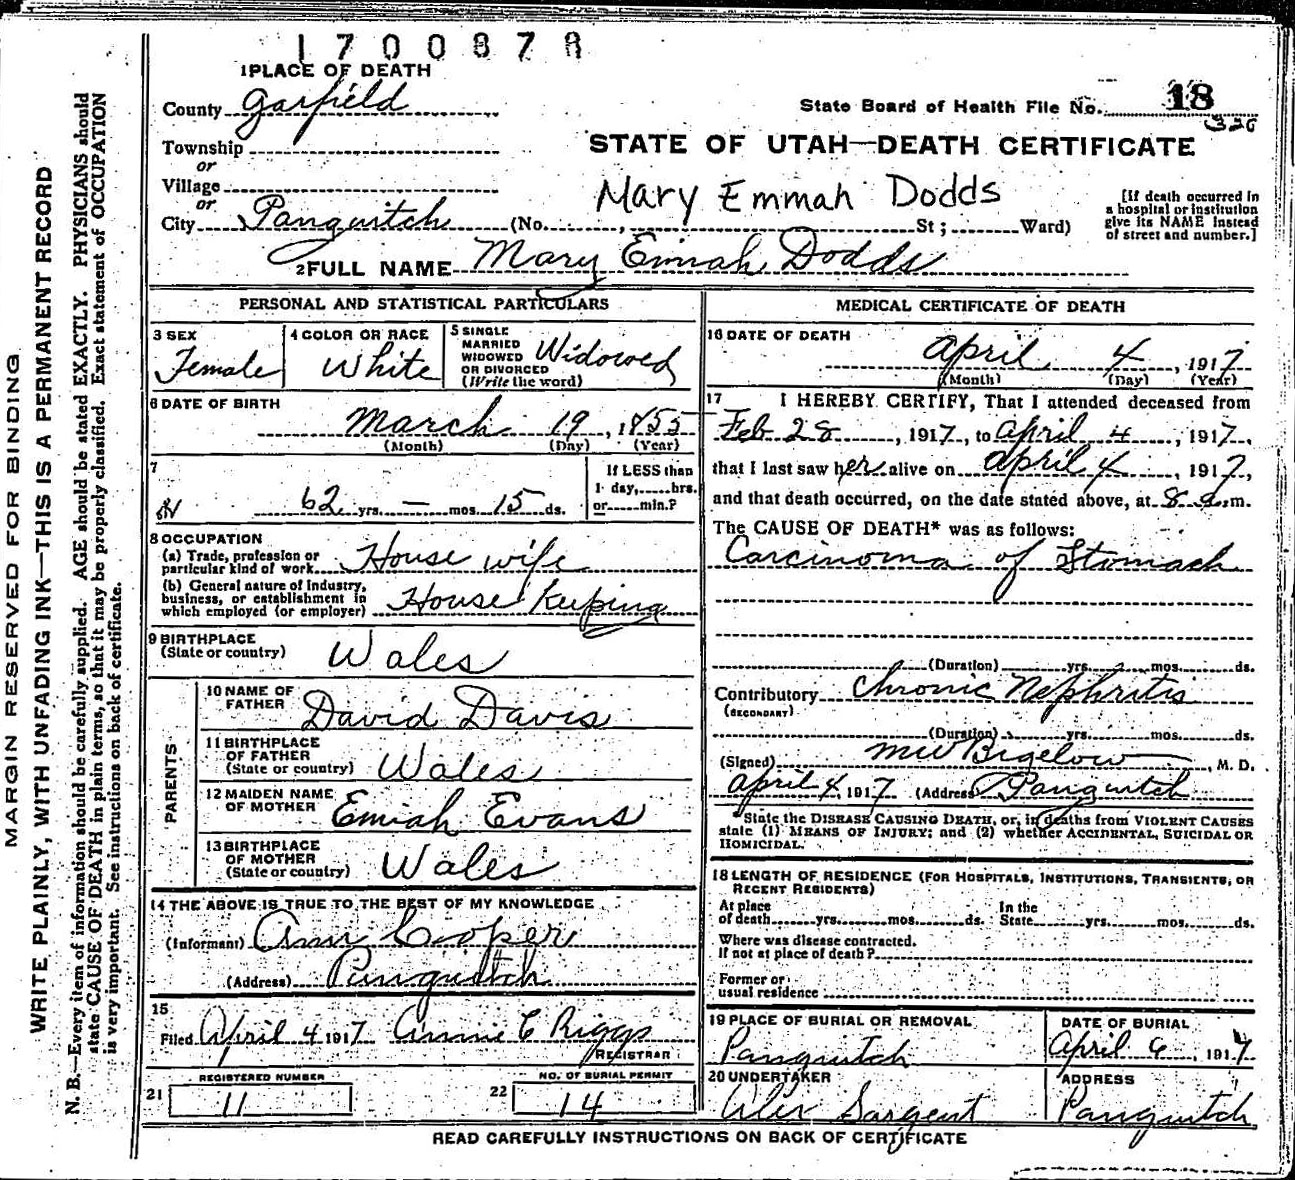 1700878
1 PLACE OF DEATH
County Garfield
State Board of Health File No. 18
326
Township
or
STATE OF UTAH—DEATH CERTIFICATE
Village
or
Mary Emmah Dodds
City Panguitch (No. , St ; Ward)
[If death occurred in a hospital or institution give its NAME instead of street and number.]
2 FULL NAME Mary Emiah Dodds
PERSONAL AND STATISTICAL PARTICULARS
3 SEX
Female
4 COLOR OR RACE
White
5 SINGLE
MARRIED
WIDOWED
OR DIVORCED
(Write the word)
Widowed
6 DATE OF BIRTH
March 19, 1855
(Month) (Day) (Year)
7
62 yrs. — mos. 15 ds.
If LESS than
1 day, hrs.
or min.?
8 OCCUPATION
(a) Trade, profession or
particular kind of work House wife
(b) General nature of Industry,
business, or establishment in
which employed (or employer) House Keeping
9 BIRTHPLACE
(State or country) Wales
PARENTS
10 NAME OF
FATHER David Davis
11 BIRTHPLACE
OF FATHER
(State or country) Wales
12 MAIDEN NAME
OF MOTHER Emiah Evans
13 BIRTHPLACE
OF MOTHER
(State or country) Wales
14 THE ABOVE IS TRUE TO THE BEST OF MY KNOWLEDGE
(Informant) Ann Cooper
(Address) Panguitch
15
Filed April 4 1917 Annie C Riggs
REGISTRAR
REGISTERED NUMBER
21 11
NO. OF BURIAL PERMIT
22 14
MEDICAL CERTIFICATE OF DEATH
16 DATE OF DEATH
April 4, 1917
(Month) (Day) (Year)
17 I HEREBY CERTIFY, That I attended deceased from
Feb 28, 1917, to April 4, 1917,
that I last saw her alive on April 4, 1917,
and that death occurred, on the date stated above, at 8 a.m.
The CAUSE OF DEATH* was as follows:
Carcinoma of Stomach
(Duration) yrs. mos. ds.
Contributory Chronic Nephritis
(SECONDARY)
(Duration) yrs. mos. ds.
(Signed) M W Bigelow, M. D.
April 4, 1917 (Address) Panguitch
*State the DISEASE CAUSING DEATH, or, in deaths from VIOLENT CAUSES
state (1) MEANS OF INJURY; and (2) whether ACCIDENTAL, SUICIDAL OR
HOMICIDAL.
18 LENGTH OF RESIDENCE (FOR HOSPITALS, INSTITUTIONS, TRANSIENTS, OR
RECENT RESIDENTS)
At place
of death yrs. mos. ds.
In the
State yrs. mos. ds.
Where was disease contracted.
If not at place of death?
Former or
usual residence
19 PLACE OF BURIAL OR REMOVAL
Panguitch
DATE OF BURIAL
April 6, 1917
20 UNDERTAKER
Alex Sargent
ADDRESS
Panguitch
READ CAREFULLY INSTRUCTIONS ON BACK OF CERTIFICATE
MARGIN RESERVED FOR BINDING
WRITE PLAINLY, WITH UNFADING INK—THIS IS A PERMANENT RECORD
N. B.—Every item of information should be carefully supplied. AGE should be stated EXACTLY. PHYSICIANS should
state CAUSE OF DEATH in plain terms, so that it may be properly classified. Exact statement of OCCUPATION
is very important. See instructions on back of certificate.